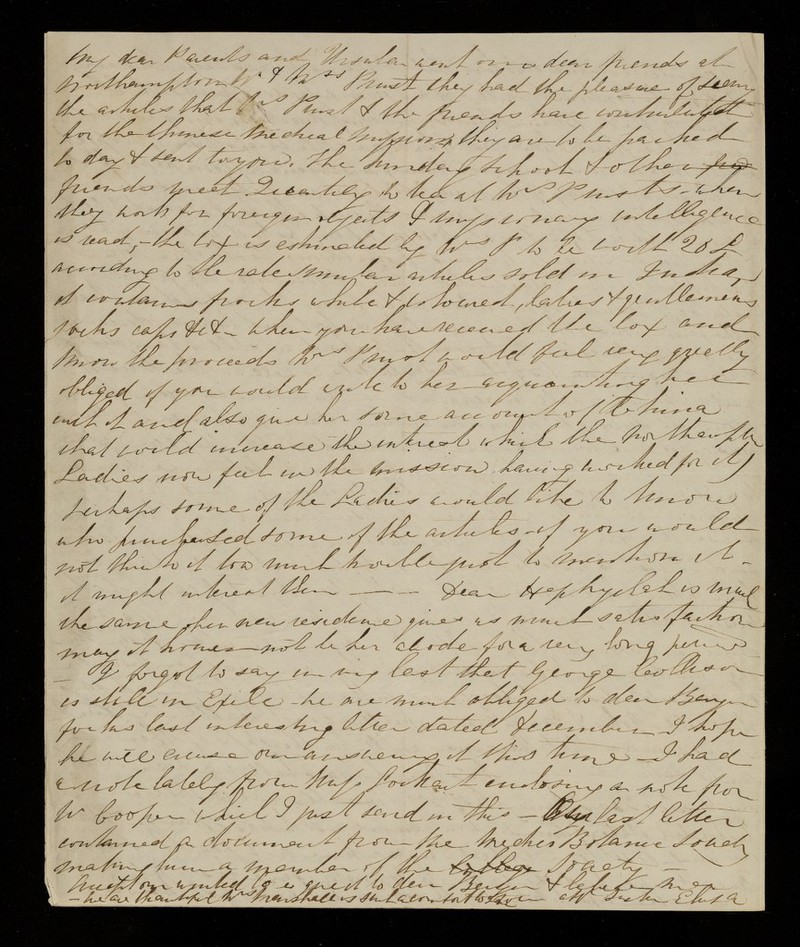 My dear Parents and Ursula went our dear friends at
Northampton Mr & Mrs Prust they had the pleasure of seeing
the articles that Mrs Prust & the friends have contributed
for the Chinese Medical Mission, they are to be packed
to day & sent to you. The Sunday School & other
friends meet to tea at Mrs Prusts - when
they work for foreign objects & missionary intelligence
is read, - the box is estimated by Mrs P to be worth 20£
according to the rate similar articles sold in India,
it contains frocks white & coloured, ladies & gentlemens
socks caps &c &c - when you have received the box and
know the proceeds Mrs Prust would feel very greatly
obliged if you would write to her acquainting her
with it and also give her some account of China
that would increase the interest which the Northampton
Ladies now feel in the mission having worked for it
perhaps some of the Ladies would like to know
who purchased some of the articles - if you would
not think it too much trouble just to mention it -
it might interest them - - - Dear Hephzibah is much
the same, her new residence gives as much satisfaction
may it not be her abode for a very long period
- I forgot to say in my last that George Collison
is still in Exile - we are much obliged to dear Benjn
for his last interesting letter dated December - I hope
he will excuse our answering it this time - I had
a note lately from Miss Lockhart enclosing a note from
Mr Cooper which I just send in this - last letter
contained a document from the Medico Botanic Society
making him a member of the Society -
Accept our united love great to dear Benjn &
- we are thankful Mrs Marshall is such a comfort to you Sister Eliza